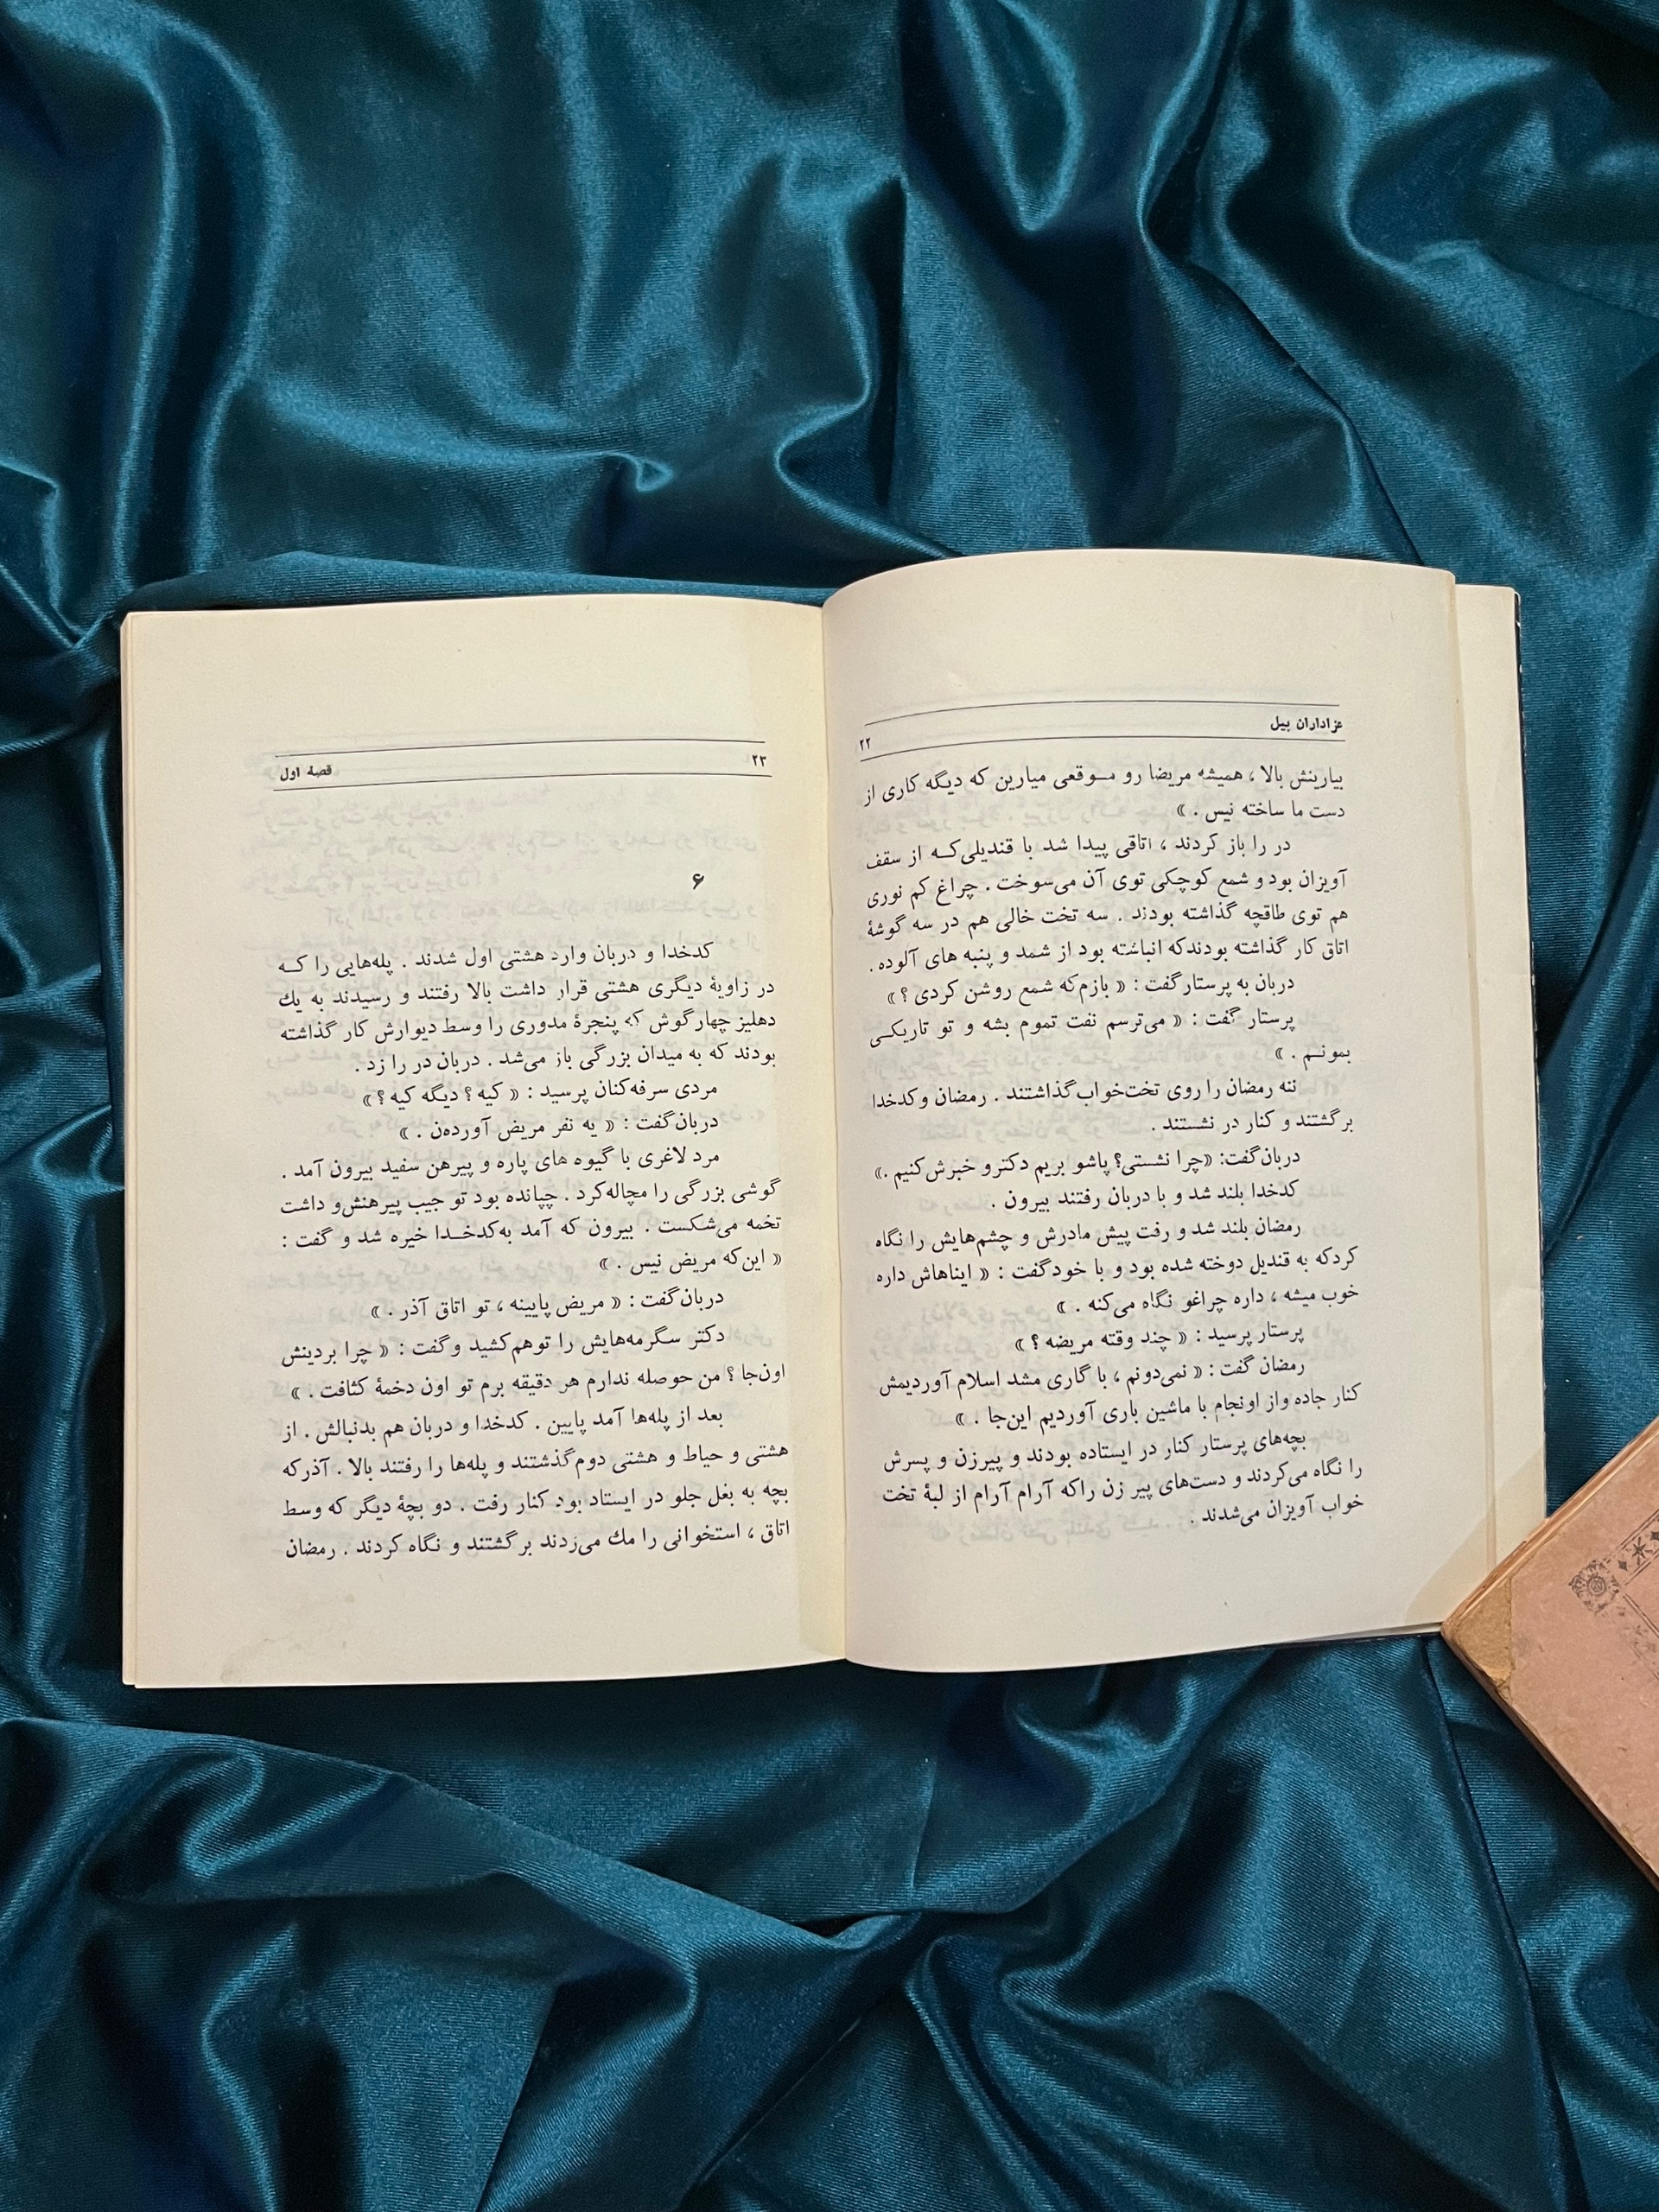 عزاداران بیل
۲۲
بیارینش بالا ، همیشه مریضا رو موقعی میارین که دیگه کاری از
دست ما ساخته نیس . »
در را باز کردند ، اتاقی پیدا شد با قندیلی‌که از سقف
آویزان بود و شمع کوچکی توی آن می‌سوخت . چراغ کم نوری
هم توی طاقچه گذاشته بودند . سه تخت خالی هم در سه گوشهٔ
اتاق کار گذاشته بودند‌که انباشته بود از شمد و پنبه های آلوده .
دربان به پرستار گفت : « بازم‌که شمع روشن کردی ؟ »
پرستار گفت : « می‌ترسم نفت تموم بشه و تو تاریکی
بمونم . »
ننه رمضان را روی تخت‌خواب گذاشتند . رمضان و کدخدا
برگشتند و کنار در نشستند .
دربان گفت: «چرا نشستی؟ پاشو بریم دکترو خبرش کنیم .»
کدخدا بلند شد و با دربان رفتند بیرون .
رمضان بلند شد و رفت پیش مادرش و چشم‌هایش را نگاه
کرد‌که به قندیل دوخته شده بود و با خود گفت : « ایناهاش داره
خوب میشه ، داره چراغو نگاه می‌کنه . »
پرستار پرسید : « چند وقته مریضه ؟ »
رمضان گفت : « نمی‌دونم ، با گاری مشد اسلام آوردیمش
کنار جاده واز اونجام با ماشین باری آوردیم این‌جا . »
بچه‌های پرستار کنار در ایستاده بودند و پیرزن و پسرش
را نگاه می‌کردند و دست‌های پیر زن را‌که آرام آرام از لبهٔ تخت
خواب آویزان می‌شدند .
۲۳
قصهٔ اول
۶
کدخدا و دربان وارد هشتی اول شدند . پله‌هایی را که
در زاویهٔ دیگری هشتی قرار داشت بالا رفتند و رسیدند به یك
دهلیز چهار گوش که پنجرهٔ مدوری را وسط دیوارش کار گذاشته
بودند که به میدان بزرگی باز می‌شد . دربان در را زد .
مردی سرفه‌کنان پرسید : « کیه ؟ دیگه کیه ؟ »
دربان گفت : « یه نفر مریض آورده‌ن . »
مرد لاغری با گیوه های پاره و پیرهن سفید بیرون آمد .
گوشی بزرگی را مچاله کرد . چپانده بود تو جیب پیرهنش‌و داشت
تخمه می‌شکست . بیرون که آمد به‌کدخدا خیره شد و گفت :
« این‌که مریض نیس . »
دربان گفت : « مریض پایینه ، تو اتاق آذر . »
دکتر سگرمه‌هایش را توهم کشید و گفت : « چرا بردینش
اون‌جا ؟ من حوصله ندارم هر دقیقه برم تو اون دخمهٔ کثافت . »
بعد از پله‌ها آمد پایین . کدخدا و دربان هم بدنبالش . از
هشتی و حیاط و هشتی دوم گذشتند و پله‌ها را رفتند بالا . آذر‌که
بچه به بغل جلو در ایستاد بود کنار رفت . دو بچهٔ دیگر که وسط
اتاق ، استخوانی را مك می‌زدند برگشتند و نگاه کردند . رمضان